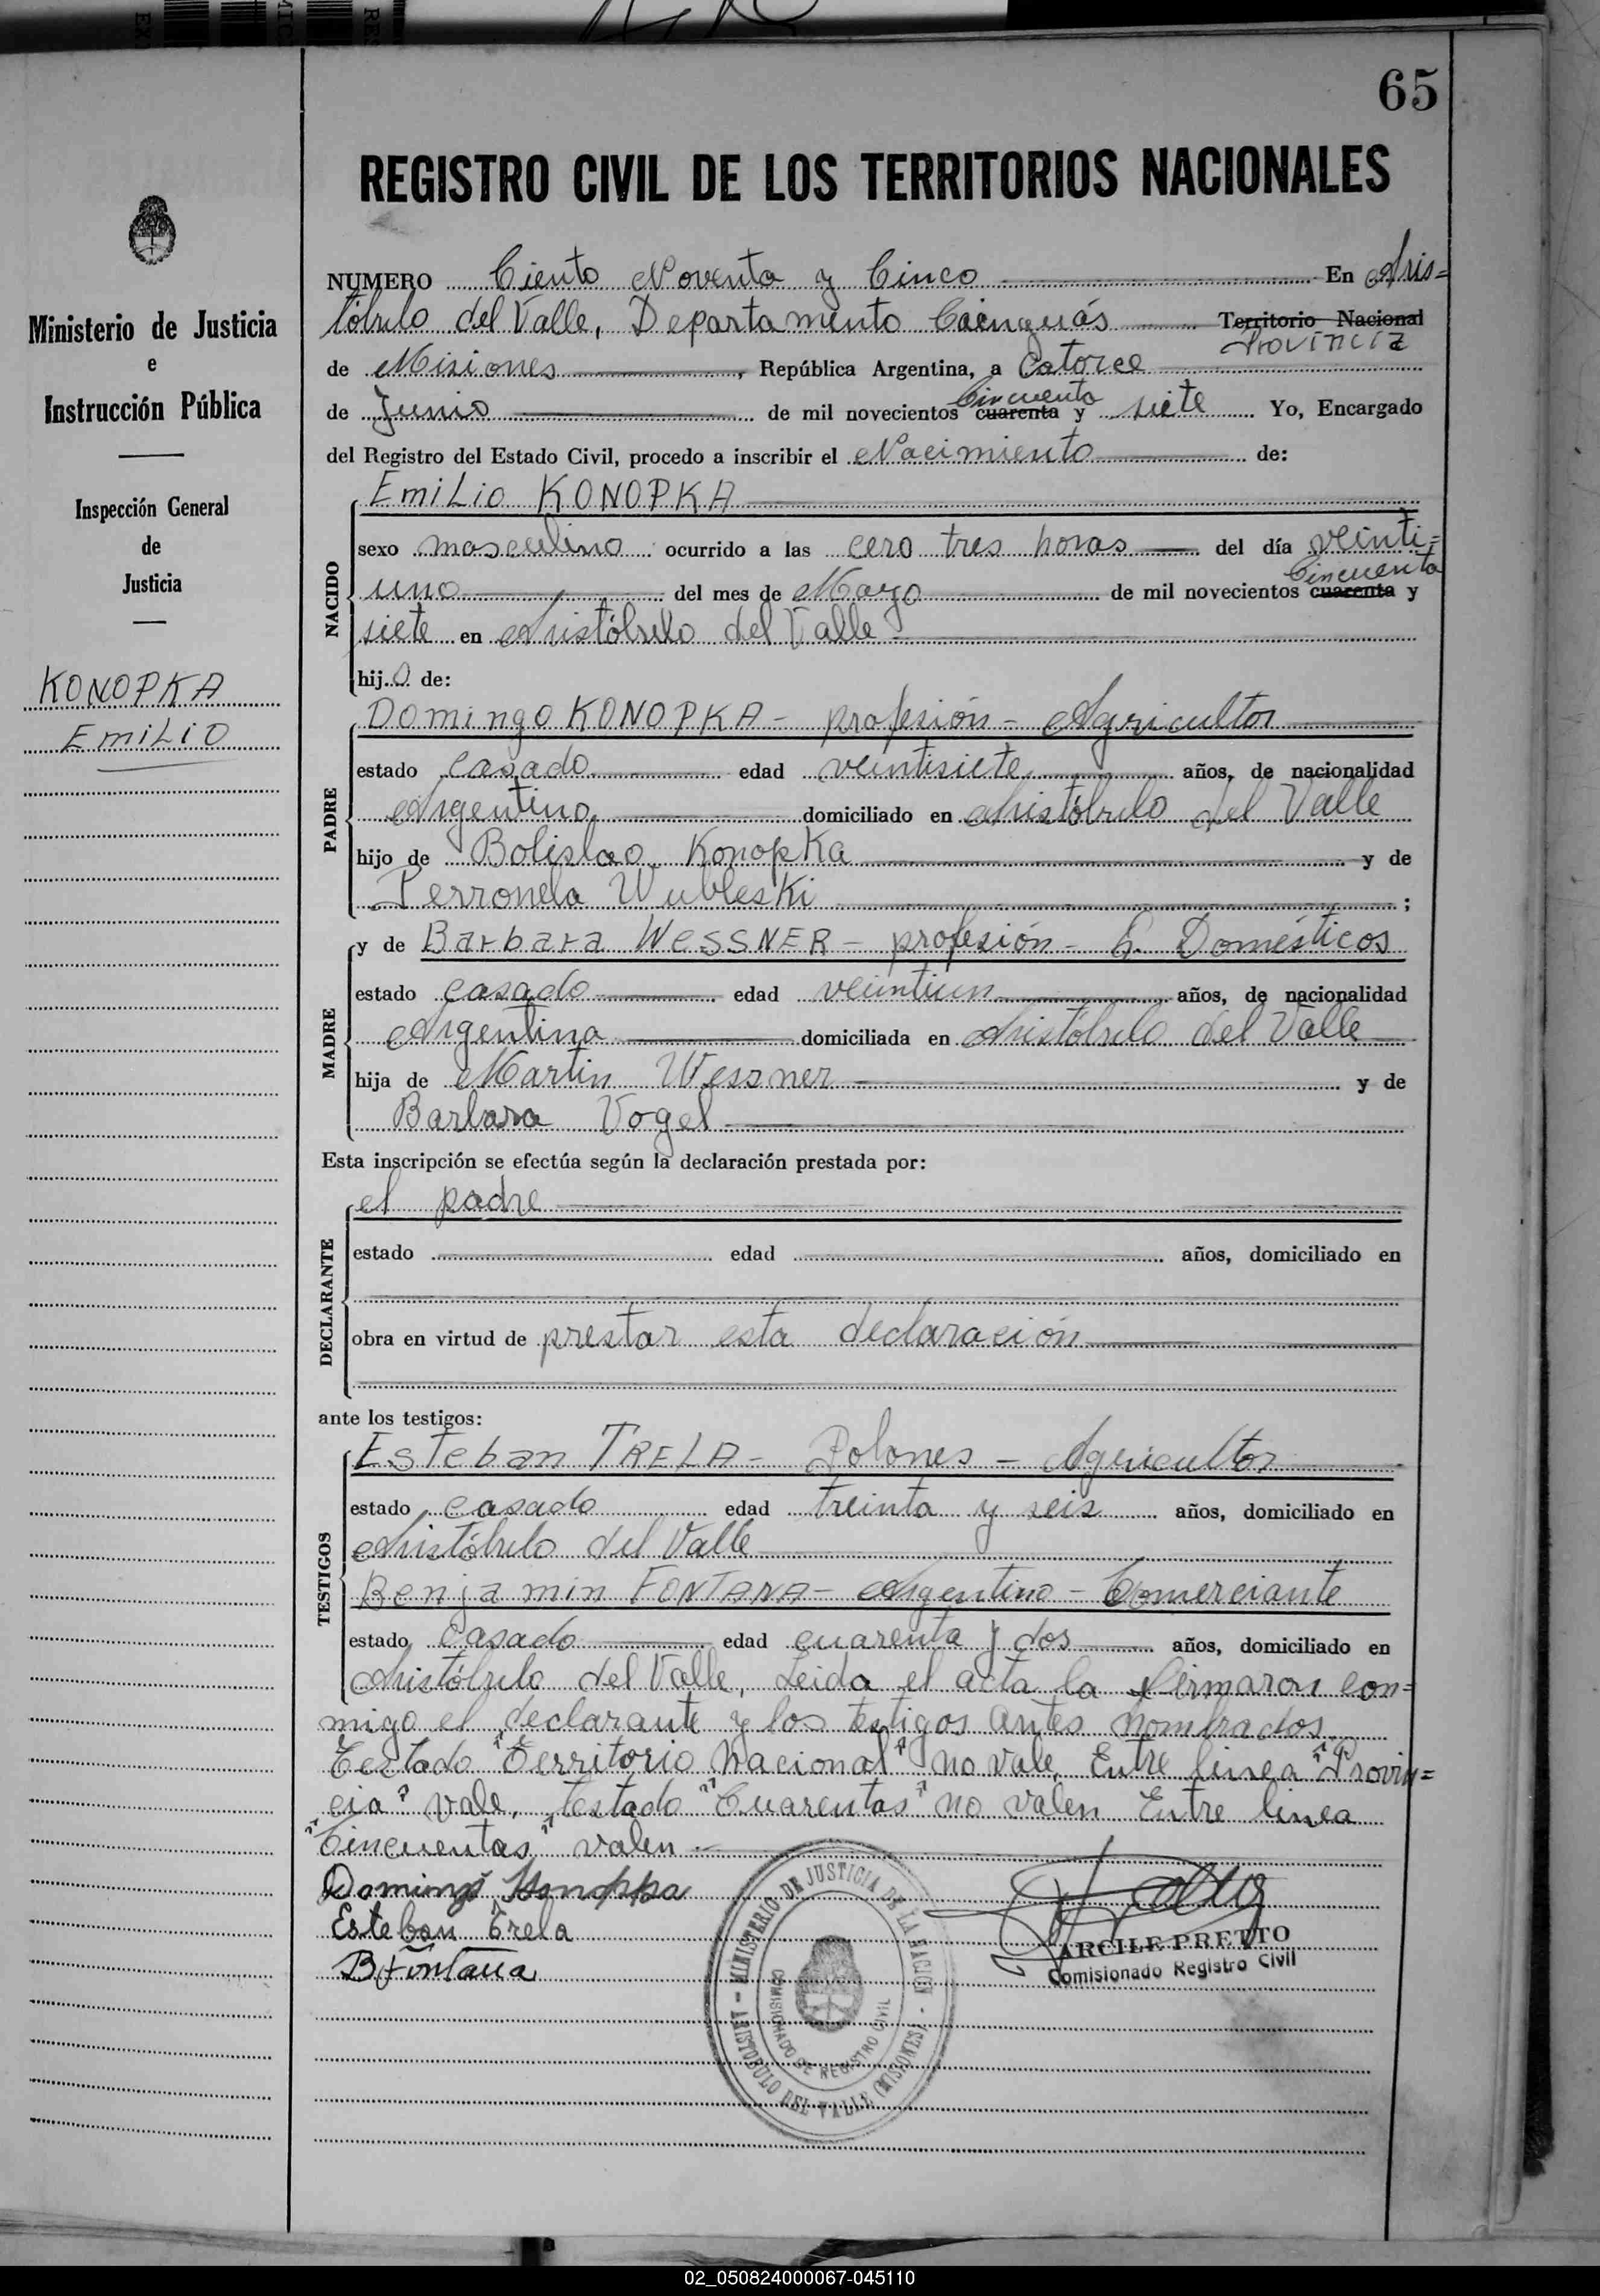 65
REGISTRO CIVIL DE LOS TERRITORIOS NACIONALES
Ministerio de Justicia
e
Instrucción Pública
Inspección General
de
Justicia
KONOPKA
EMILIO
NUMERO Ciento Noventa y Cinco En Aris=
tóbulo del Valle, Departamento Cainguás Territorio Nacional
Provincia
de Misiones, República Argentina, a Catorce
Cincuenta
de Junio de mil novecientos cuarenta y siete Yo, Encargado
del Registro del Estado Civil, procedo a inscribir el Nacimiento de:
NACIDO
Emilio KONOPKA
sexo masculino ocurrido a las cero tres horas del día veinti=
Cincuenta
uno del mes de Marzo de mil novecientos cuarenta y
siete en Aristóbulo del Valle
hijo de:
PADRE
Domingo KONOPKA - profesión - Agricultor
estado casado edad veintisiete años, de nacionalidad
Argentino domiciliado en Aristóbulo del Valle
hijo de Bolislao Konopka y de
Perronela Wubleski ;
MADRE
y de Barbara WESSNER - profesión - Q. Domésticos
estado casado edad veintiun años, de nacionalidad
Argentina domiciliada en Aristóbulo del Valle
hija de Martin Wessner y de
Barbara Vogel
Esta inscripción se efectúa según la declaración prestada por:
DECLARANTE
el padre
estado edad años, domiciliado en
obra en virtud de prestar esta declaración
ante los testigos:
TESTIGOS
Esteban TRELA - Polones - Agricultor
estado casado edad treinta y seis años, domiciliado en
Aristóbulo del Valle
Benjamin FONTANA - Argentino - Comerciante
estado casado edad cuarenta y dos años, domiciliado en
Aristóbulo del Valle, Leida el acta la firmaron con=
migo el declarante y los testigos antes nombrados
Testado "Territorio Nacional" no vale, Entre linea "Provin=
cia" vale, testado "Cuarentas" no valen Entre linea
"Cincuentas" valen
Domingo Konopka
Esteban Trela
B Fontana
ARCILE PRETTO
Comisionado Registro Civil
MINISTERIO DE JUSTICIA DE LA NACION
ARISTOBULO DEL VALLE (MISIONES)
COMISIONADO DE REGISTRO CIVIL
02_050824000067-045110